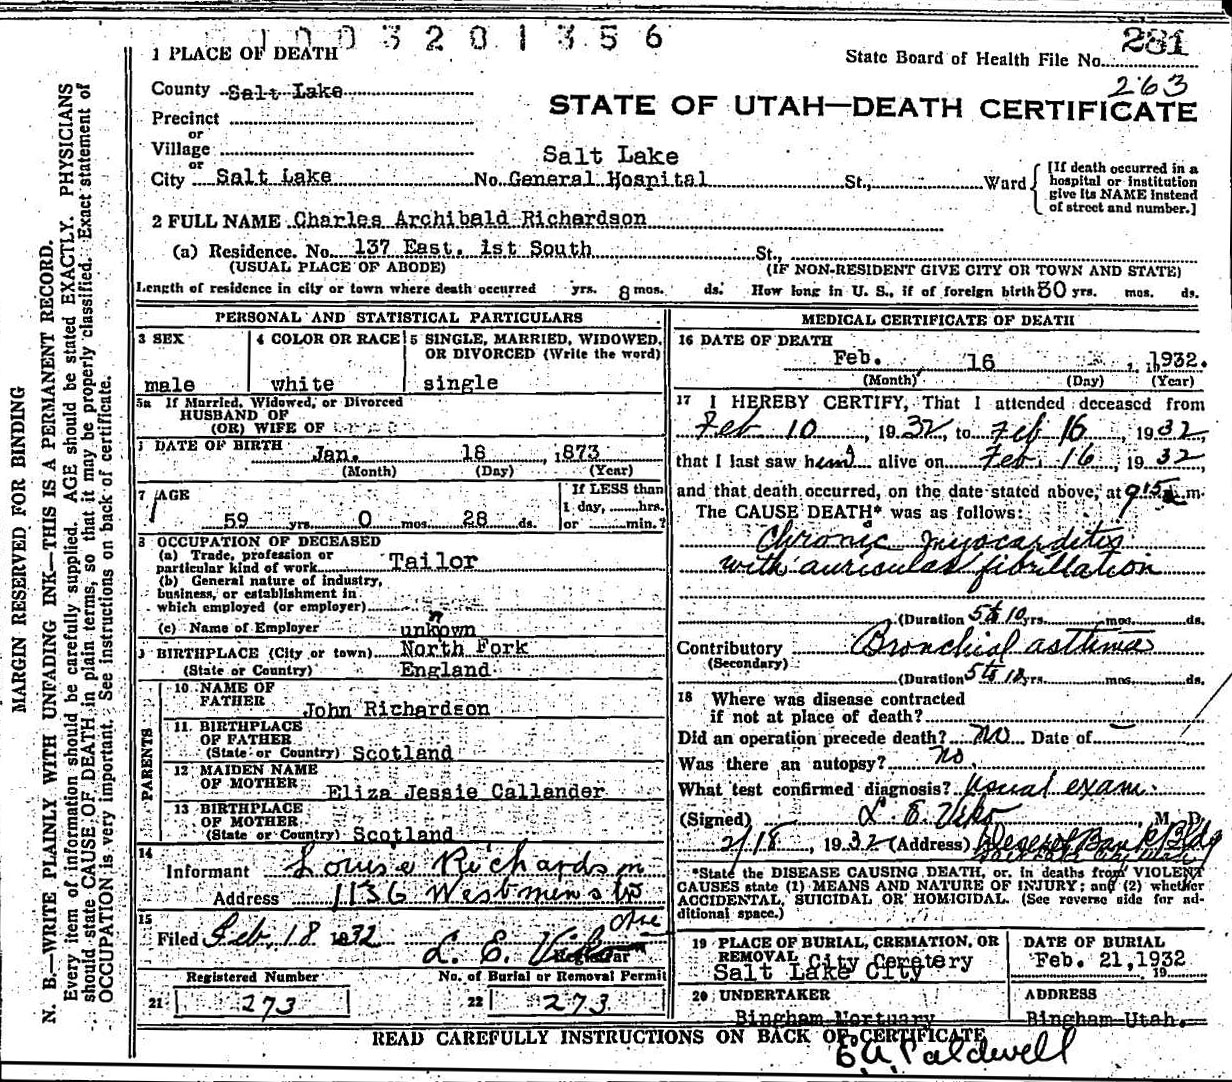 1003201356
281
State Board of Health File No.
263
1 PLACE OF DEATH
STATE OF UTAH—DEATH CERTIFICATE
County Salt Lake
Precinct
or
Village
or
City Salt Lake No. Salt Lake General Hospital St., Ward
[If death occurred in a
hospital or institution
give its NAME instead
of street and number.]
2 FULL NAME Charles Archibald Richardson
(a) Residence. No. 137 East. 1st South St.,
(USUAL PLACE OF ABODE) (IF NON-RESIDENT GIVE CITY OR TOWN AND STATE)
Length of residence in city or town where death occurred yrs. 8 mos. ds. How long in U. S., if of foreign birth 30 yrs. mos. ds.
PERSONAL AND STATISTICAL PARTICULARS
3 SEX
male
4 COLOR OR RACE
white
5 SINGLE, MARRIED, WIDOWED,
OR DIVORCED (Write the word)
single
5a If Married, Widowed, or Divorced
HUSBAND OF
(OR) WIFE OF
DATE OF BIRTH Jan. 18, 1873
(Month) (Day) (Year)
7 AGE
59 yrs. 0 mos. 28 ds.
If LESS than
1 day, hrs.
or min.?
8 OCCUPATION OF DECEASED
(a) Trade, profession or
particular kind of work Tailor
(b) General nature of industry,
business, or establishment in
which employed (or employer)
(c) Name of Employer unkown
n
9 BIRTHPLACE (City or town) North Fork
(State or Country) England
PARENTS
10 NAME OF
FATHER John Richardson
11 BIRTHPLACE
OF FATHER
(State or Country) Scotland
12 MAIDEN NAME
OF MOTHER Eliza Jessie Callander
13 BIRTHPLACE
OF MOTHER
(State or Country) Scotland
14
Informant Louise Richardson
Address 1136 Westminster
Ave
15
Filed Feb. 18 1932
L. E. Viko
Registered Number
21 273
No. of Burial or Removal Permit
22 273
MEDICAL CERTIFICATE OF DEATH
16 DATE OF DEATH
Feb. 16, 1932.
(Month) (Day) (Year)
17 I HEREBY CERTIFY, That I attended deceased from
Feb 10, 1932, to Feb 16, 1932,
that I last saw him alive on Feb. 16, 1932
and that death occurred, on the date stated above, at 9 15 a.m.
The CAUSE DEATH* was as follows:
Chronic myocarditis
with auricular fibrillation
(Duration 5 to 10 yrs. mos. ds.
Contributory Bronchial asthma
(Secondary)
(Duration 5 to 10 yrs. mos. ds.
18 Where was disease contracted
if not at place of death?
Did an operation precede death? No Date of
Was there an autopsy? no.
What test confirmed diagnosis? Usual exam.
(Signed) L. E. Viko, M. D.
2/18, 1932 (Address) Deseret Bank Bldg
Salt Lake City Utah
*State the DISEASE CAUSING DEATH, or, in deaths from VIOLENT
CAUSES state (1) MEANS AND NATURE OF INJURY; and (2) whether
ACCIDENTAL, SUICIDAL OR HOMICIDAL. (See reverse side for ad-
ditional space.)
19 PLACE OF BURIAL, CREMATION, OR
REMOVAL City Cemetery
Salt Lake City
DATE OF BURIAL
Feb. 21, 1932
19
20 UNDERTAKER
Bingham Mortuary
ADDRESS
Bingham Utah.
READ CAREFULLY INSTRUCTIONS ON BACK OF CERTIFICATE
E A Caldwell
MARGIN RESERVED FOR BINDING
N. B.—WRITE PLAINLY WITH UNFADING INK—THIS IS A PERMANENT RECORD.
Every item of information should be carefully supplied. AGE should be stated EXACTLY. PHYSICIANS
should state CAUSE OF DEATH in plain terms, so that it may be properly classified. Exact statement of
OCCUPATION is very important. See instructions on back of certificate.